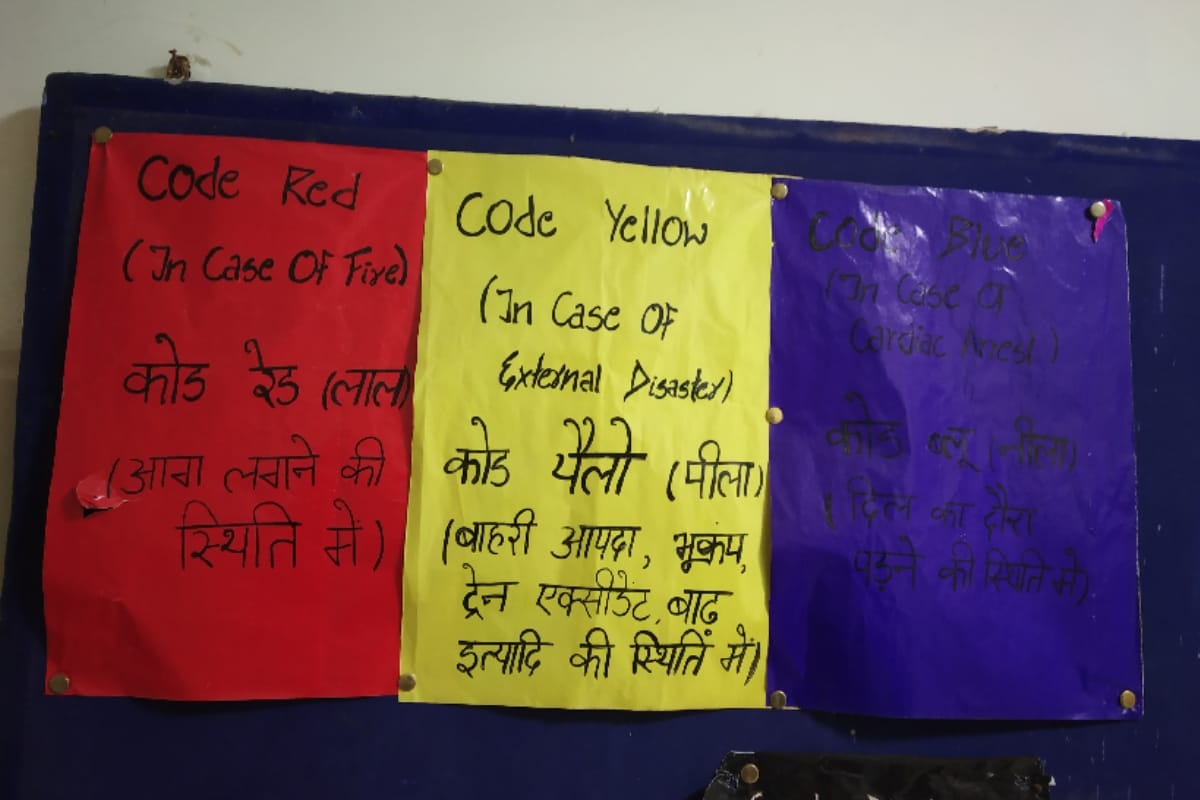 Code Red
(In Case Of Fire)
कोड रेड (लाल)
(आग लगने की
स्थिति में)
Code Yellow
(In Case Of
External Disaster)
कोड यैलो (पीला)
(बाहरी आपदा, भूकंप,
ट्रेन एक्सीडेंट, बाढ़
इत्यादि की स्थिति में)
Code Blue
(In Case Of
Cardiac Arrest)
कोड ब्लू (नीला)
(दिल का दौरा
पड़ने की स्थिति में)